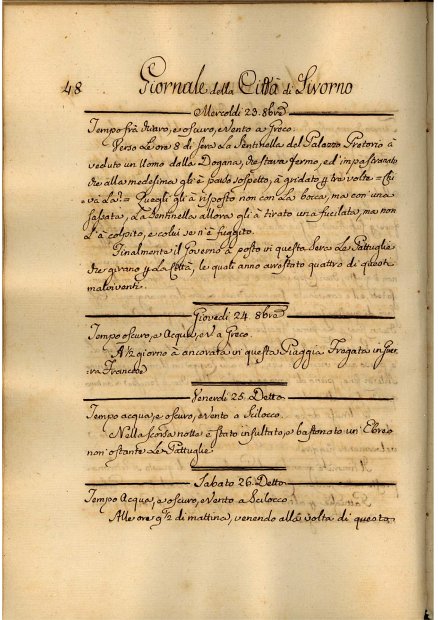 48 Giornale della Città di Livorno
Mercoldì 23. 8bre
Tempo frà chiaro, e oscuro, e Vento a Greco.
Verso Le ore 8 di Sera La Sentinella del Palazzo Pretorio à
veduto un Uomo dalla Dogana, che stava fermo, ed impastranato
che alla medesima gli è parso sospetto, à gridato p tre volte = Chi
va La? = Quegli gli à risposto non con La bocca, ma con una
sassata, La Sentinella allora gli à tirato una fucilata, ma non
L'à colpito, e colui se n'è fuggito.
Finalmente il Governo à posto in questa Sera Le Pattuglie
che girano p La Città, le quali anno arrestato quattro di questi
malviventi.
Giovedì 24. 8bre
Tempo oscuro, e Acqua, e V. a Greco.
A ½ giorno à ancorata in questa Piaggia Fregata in Guer-
ra Francese
Venerdì 25. Detto.
Tempo acqua, e oscuro, e Vento a Scilocco.
Nella scorsa notte è stato insultato, e bastonato un Ebreo
non ostante Le Pattuglie.
Sabato 26. Detto.
Tempo Acqua, e oscuro, e Vento a Scilocco.
Alle ore 9½ di mattina, venendo alla volta di questo